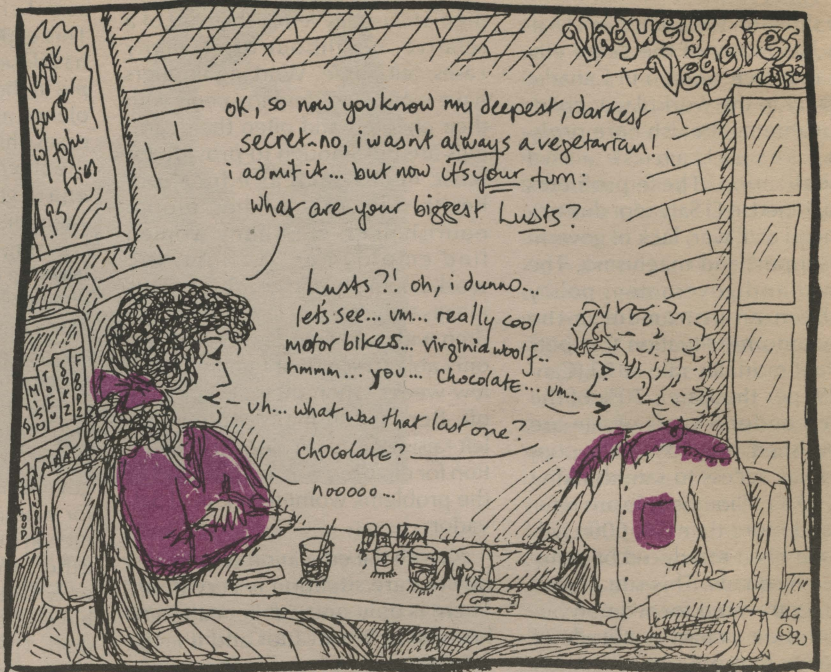 Vaguely
Veggies
café
Veggie
Burger
w/ tofu
fries
4.95
oK, so now you know my deepest, darkest
secret~no, i wasn't always a vegetarian!
i admit it... but now it's your turn:
what are your biggest Lusts?
Lusts?! oh, i dunno...
let's see... um... really cool
motor bikes... virginia woolf...
hmmm... you... chocolate... um...
uh... what was that last one?
chocolate?
nooooo...
MISO
TOFU
FOOD
AG
©90